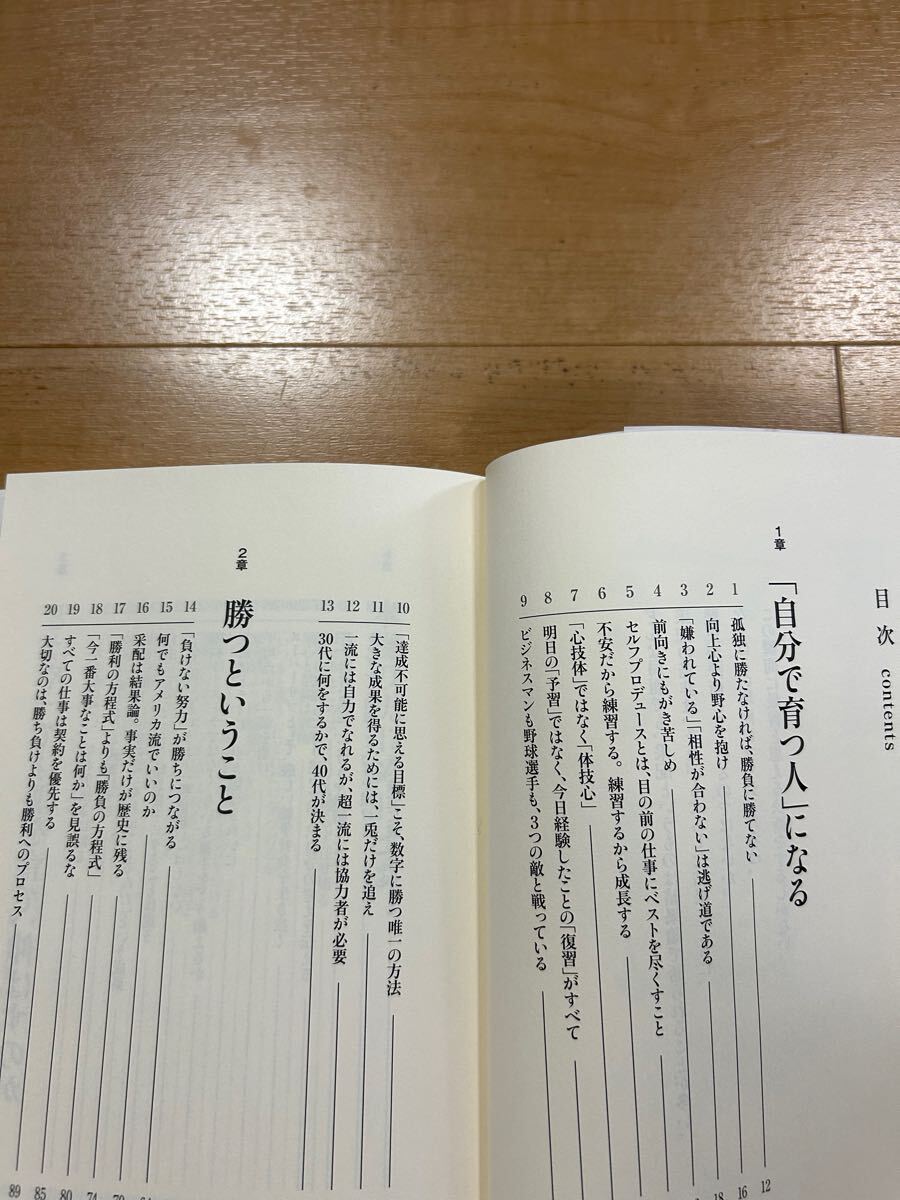 目次 contents
1章
「自分で育つ人」になる
1 孤独に勝たなければ、勝負に勝てない 12
2 向上心より野心を抱け 16
3 「嫌われている」「相性が合わない」は逃げ道である 18
4 前向きにもがき苦しめ
5 セルフプロデュースとは、目の前の仕事にベストを尽くすこと
6 不安だから練習する。練習するから成長する
7 「心技体」ではなく「体技心」
8 明日の「予習」ではなく、今日経験したことの「復習」がすべて
9 ビジネスマンも野球選手も、3つの敵と戦っている
10 「達成不可能に思える目標」こそ、数字に勝つ唯一の方法
11 大きな成果を得るためには、一兎だけを追え
12 一流には自力でなれるが、超一流には協力者が必要
13 30代に何をするかで、40代が決まる
2章
勝つということ
14 「負けない努力」が勝ちにつながる
15 何でもアメリカ流でいいのか
16 采配は結果論。事実だけが歴史に残る
17 「勝利の方程式」よりも「勝負の方程式」
18 「今一番大事なことは何か」を見誤るな 80
19 すべての仕事は契約を優先する 85
20 大切なのは、勝ち負けよりも勝利へのプロセス 89